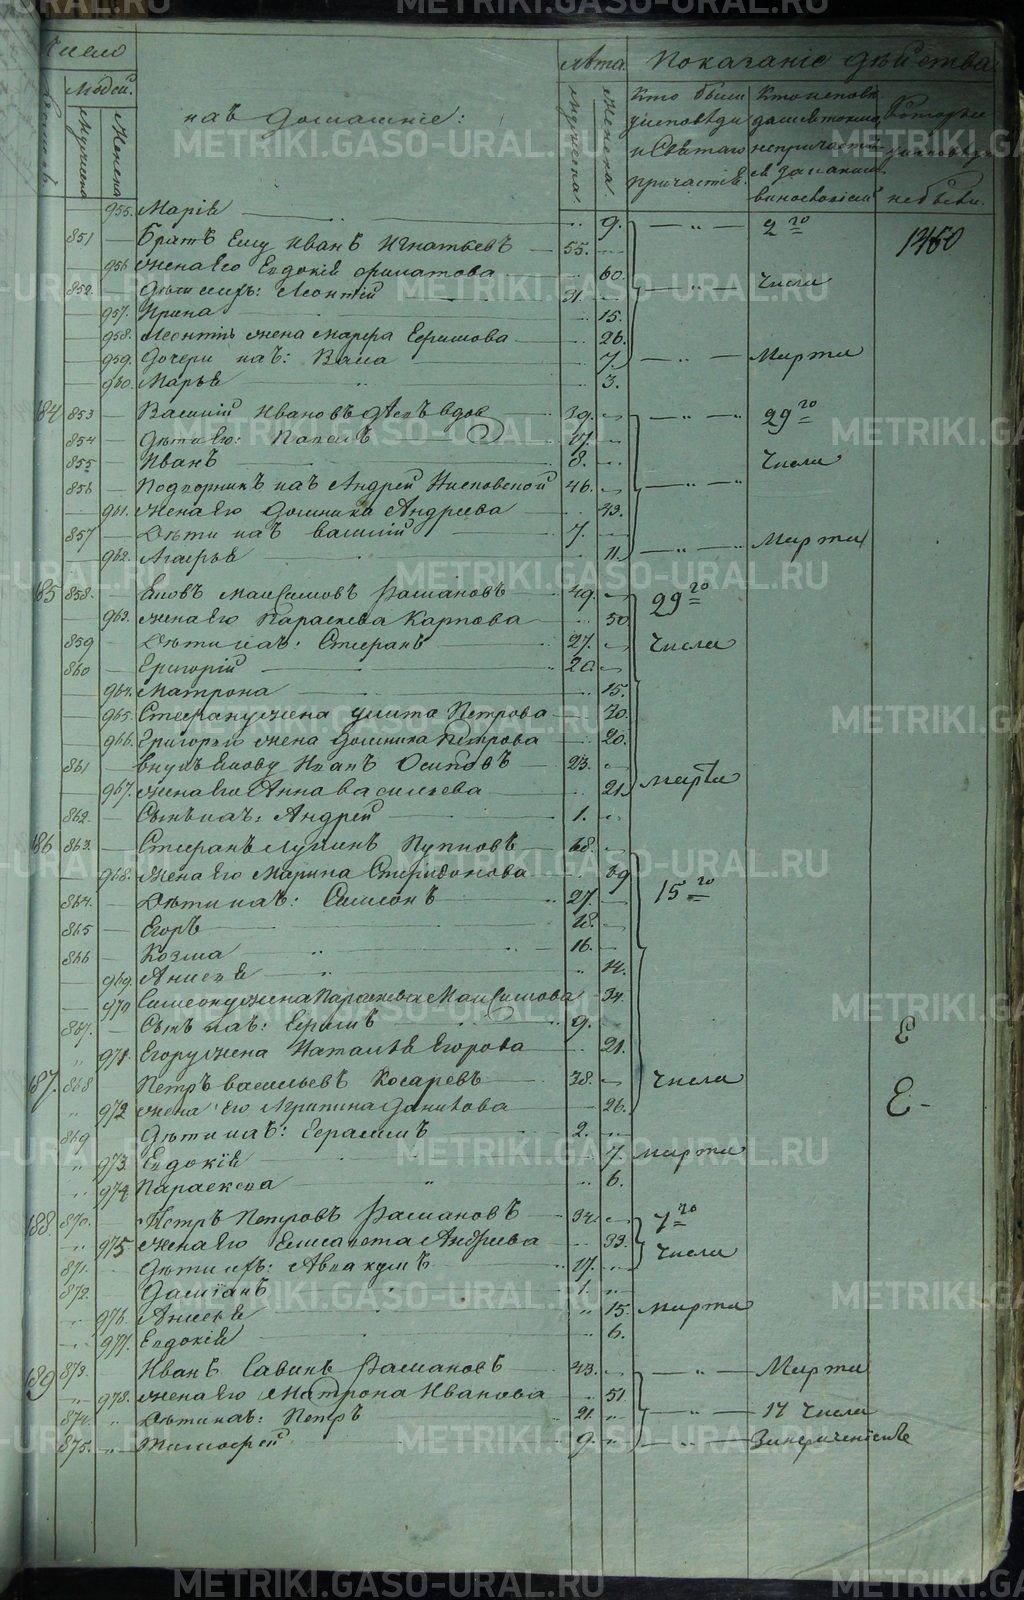 Число
Людей.
Мужеска
Женска
ихъ домашніе:
Лѣта
Мужеска.
Женска.
Показаніе дѣйства
Кто были у исповѣди и Святаго причастія.
Кто исповѣдались токмо, а не причастились и за какимъ винословіемъ
Которые у исповѣди не были.
955. Марія 9. 2го
1450
851 Братъ Ему Иванъ Игнатьевъ 55.
956 жена Его Евдокія Филатова 60.
852. Дѣти ихъ: Леонтій 31. Числа
957. Ирина 15.
958. Леонтія жена Марфа Ефимова 26.
959. Дочери ихъ: Васса 7. Марта
960. Марья 3.
184 853 Василій Ивановъ вдов 39. 29го
854 Дѣти Его: Павелъ 17.
855 Иванъ 8. Числа
856 Подворникъ ихъ Андрей 46.
961. жена Его Домника Андреева 43.
857 Дѣти ихъ Василій 7. Марта
962. Агафья 11.
185 858. Іовъ Максимовъ Рамановъ 49. 29го
963. жена Его Параскева Карпова 50
859 Дѣти ихъ: Стефанъ 27. Числа
860 Григорій 20.
964. Матрона 15.
965. Стефану жена Улита Петрова 30.
966. Григорью жена Домника Петрова 20.
861 внукъ Іову Иванъ Осиповъ 23.
967. жена Его Анна Васильева 21. Марта
862. Сынъ ихъ: Андрей 1.
186 863. Стефанъ Пупковъ 68.
968. жена Его Марина Спиридонова 69 15го
864. Дѣти ихъ: Симеонъ 37.
865 Егоръ 18.
866 Козма 16.
969. Анисья 14.
970 Симеону жена Параскева Максимова 34.
867. Сынъ ихъ: Ефимъ 9.
971. Егору жена Наталья Егорова 21.
187. 868 Петръ Васильевъ Косаревъ 38. Числа
972 жена Его Агрипина Данилова 26.
869 Дѣти ихъ: Герасимъ 2.
973. Евдокія 7. Марта
974 Параскева 6.
188. 870. Петръ Петровъ Рамановъ 34. 7го
975 жена Его Елисавета Андреева 33. Числа
871. Дѣти ихъ: Аввакумъ 17.
872. Даміанъ 1.
976. Анисья 15. Марта
977. Евдокія 6.
189 873. Иванъ Савинъ Рамановъ 43. Марта
978. жена Его Матрона Иванова 51
874. Дѣти ихъ: Петръ 21. 17 Числа
875. Тимофей 9.
METRIKI.GASO-URAL.RU